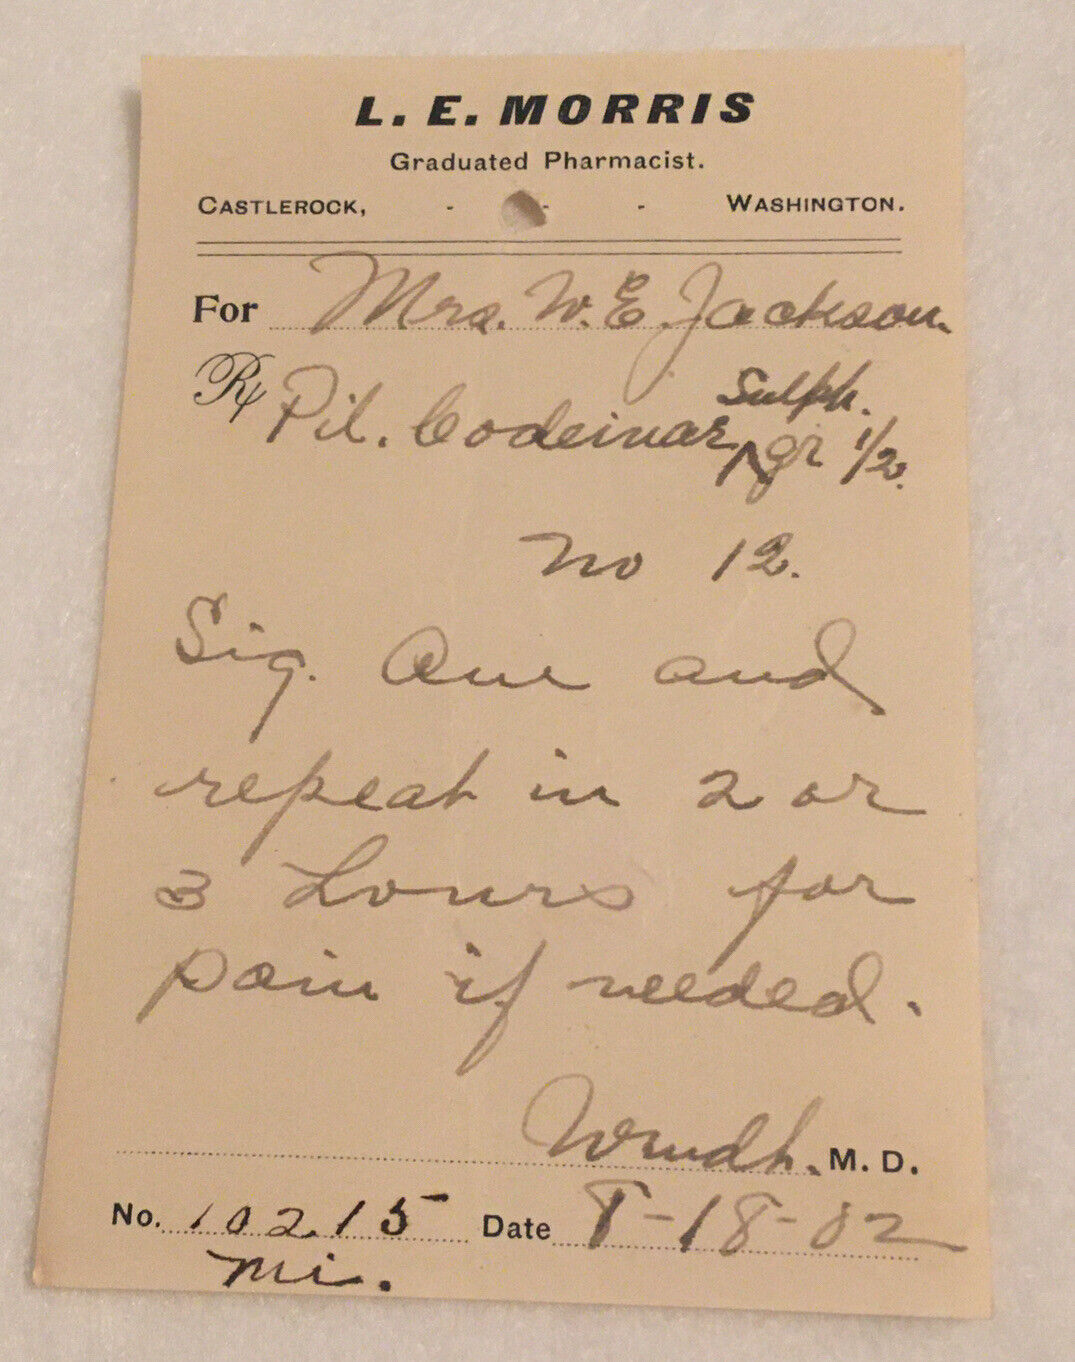 L. E. MORRIS
Graduated Pharmacist.
CASTLEROCK, - - - WASHINGTON.
For Mrs. W. E. Jackson.
Rx Pil. Codeinae Sulph. gr 1/2.
No 12.
Sig. One and
repeat in 2 or
3 hours for
pain if needed.
M. D.
No. 10215 Date 8-18-02